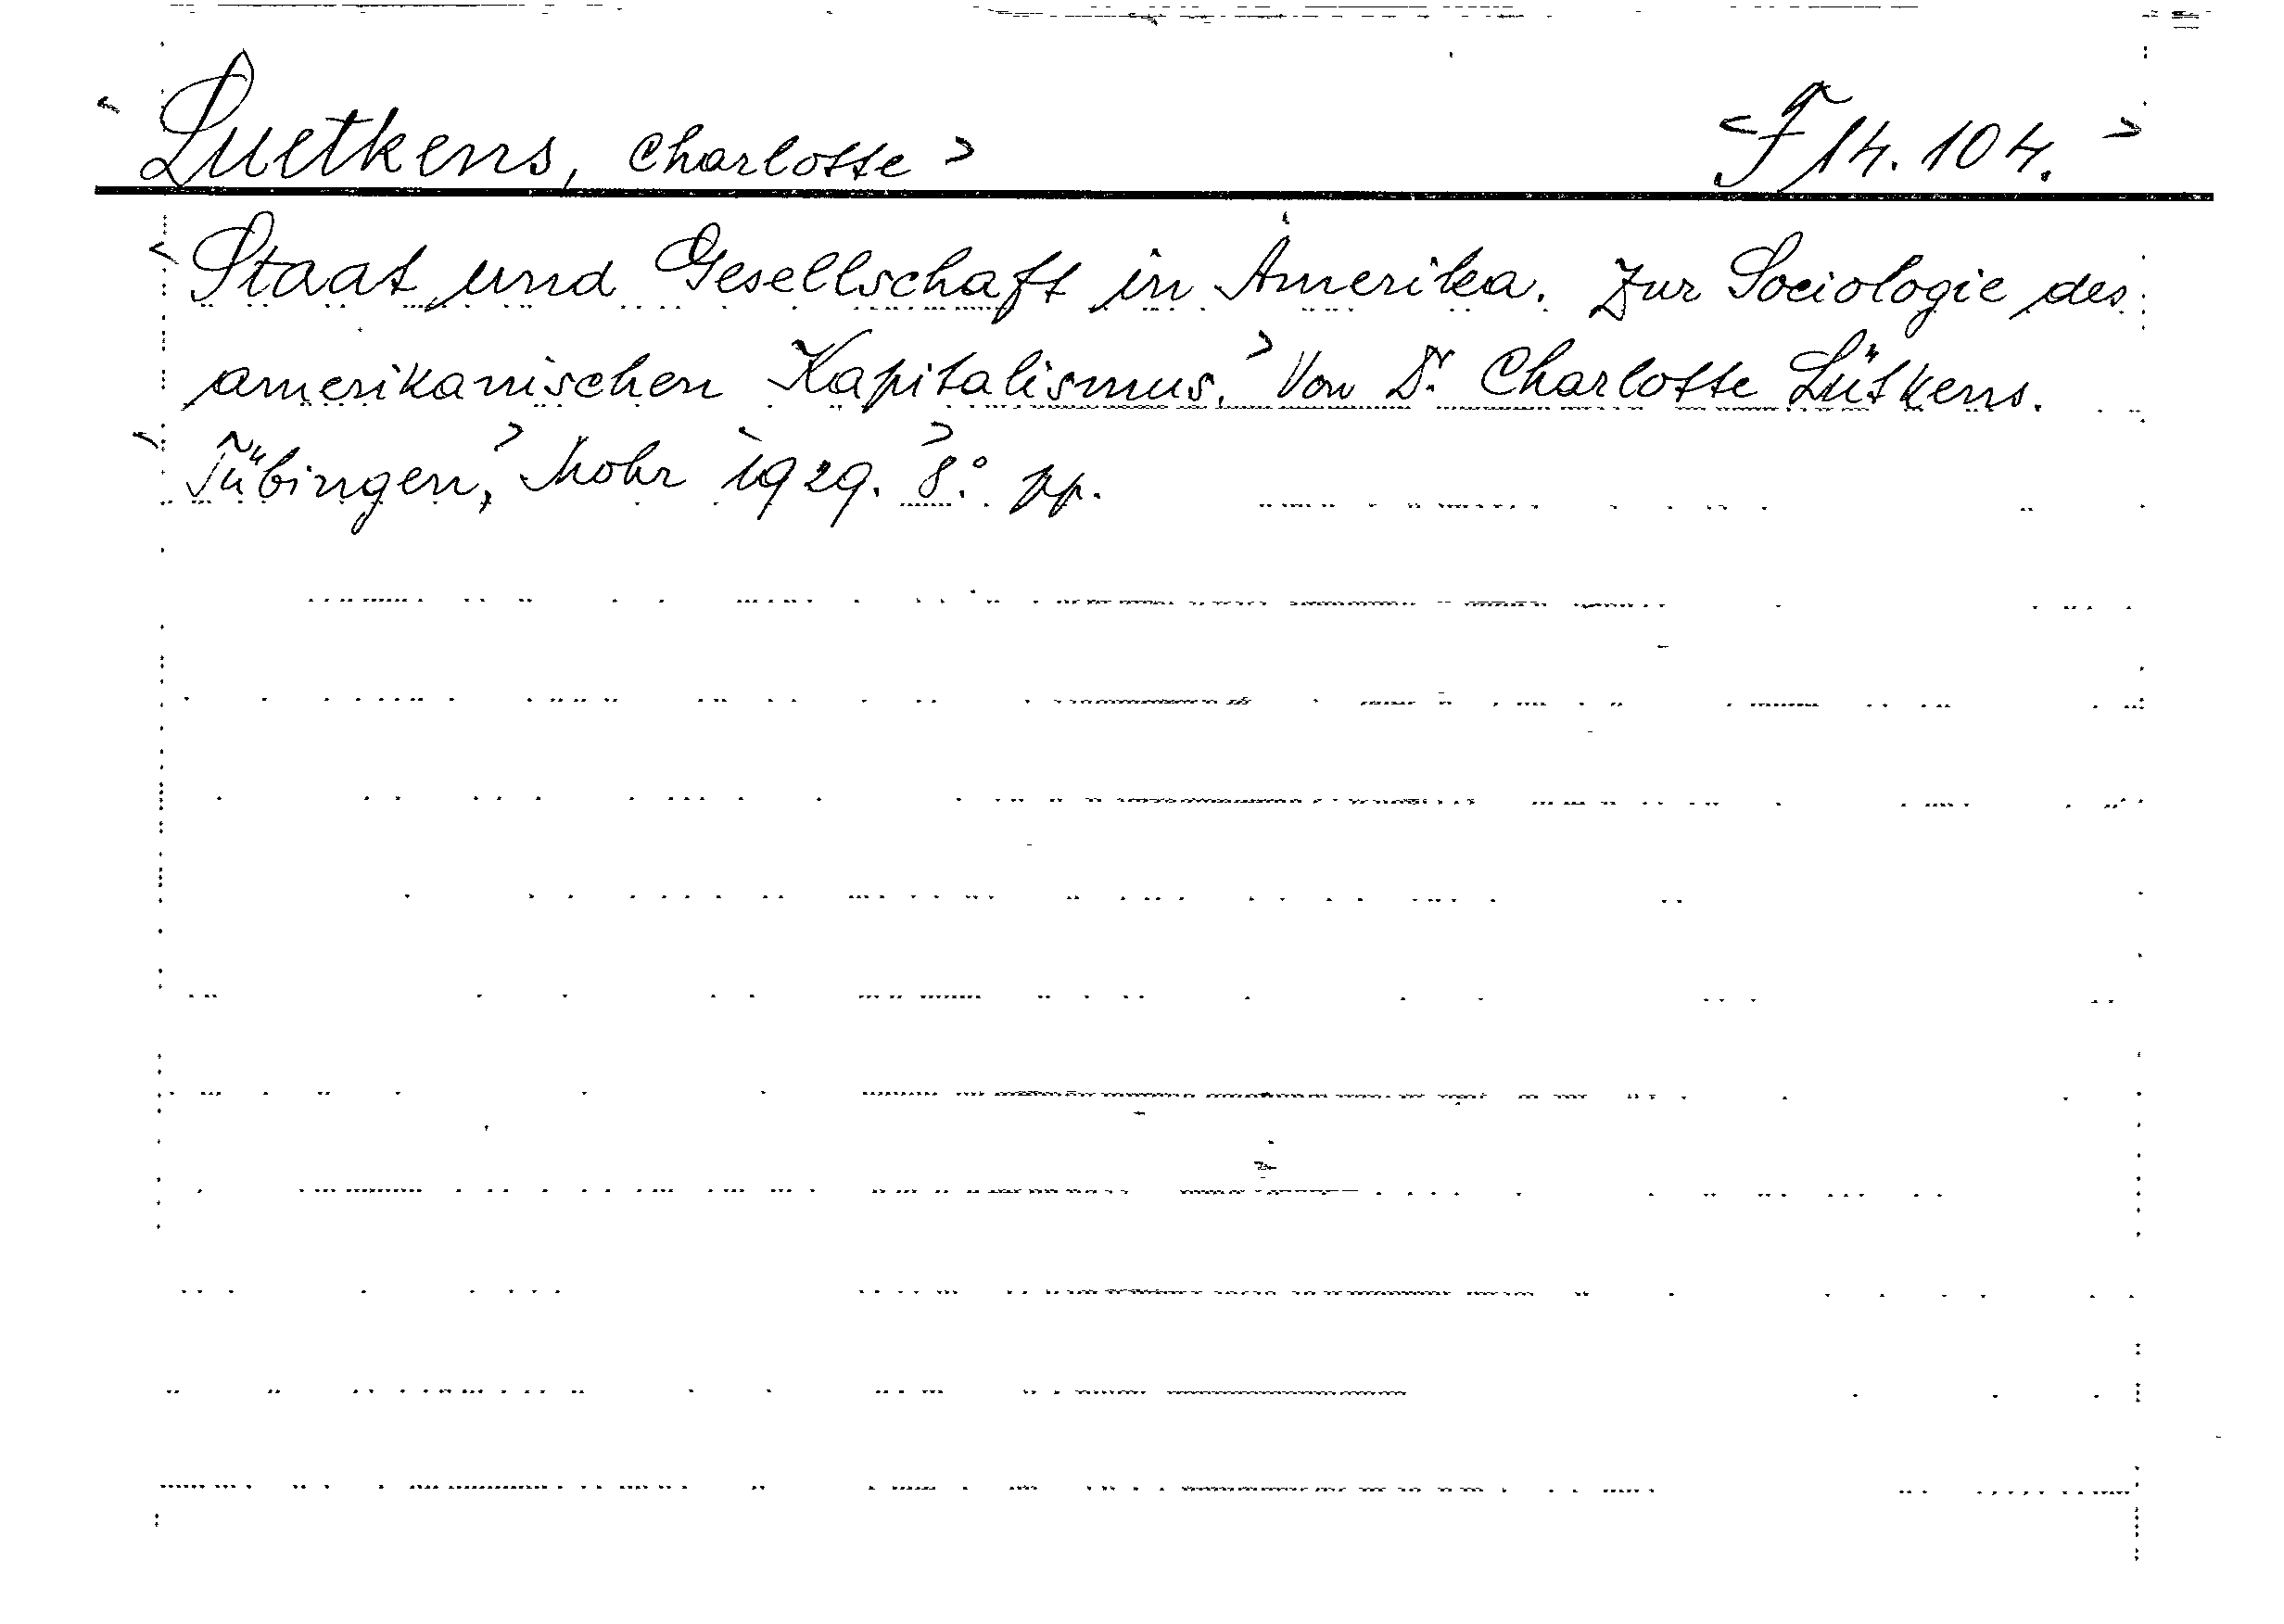 <Luetkens, Charlotte> <F 14.104.>
<Staat und Gesellschaft in Amerika. Zur Sociologie des
amerikanischen Kapitalismus.> Von Dr. Charlotte Lütkens.
<Tübingen,> Mohr <1929.> 8.° pp.